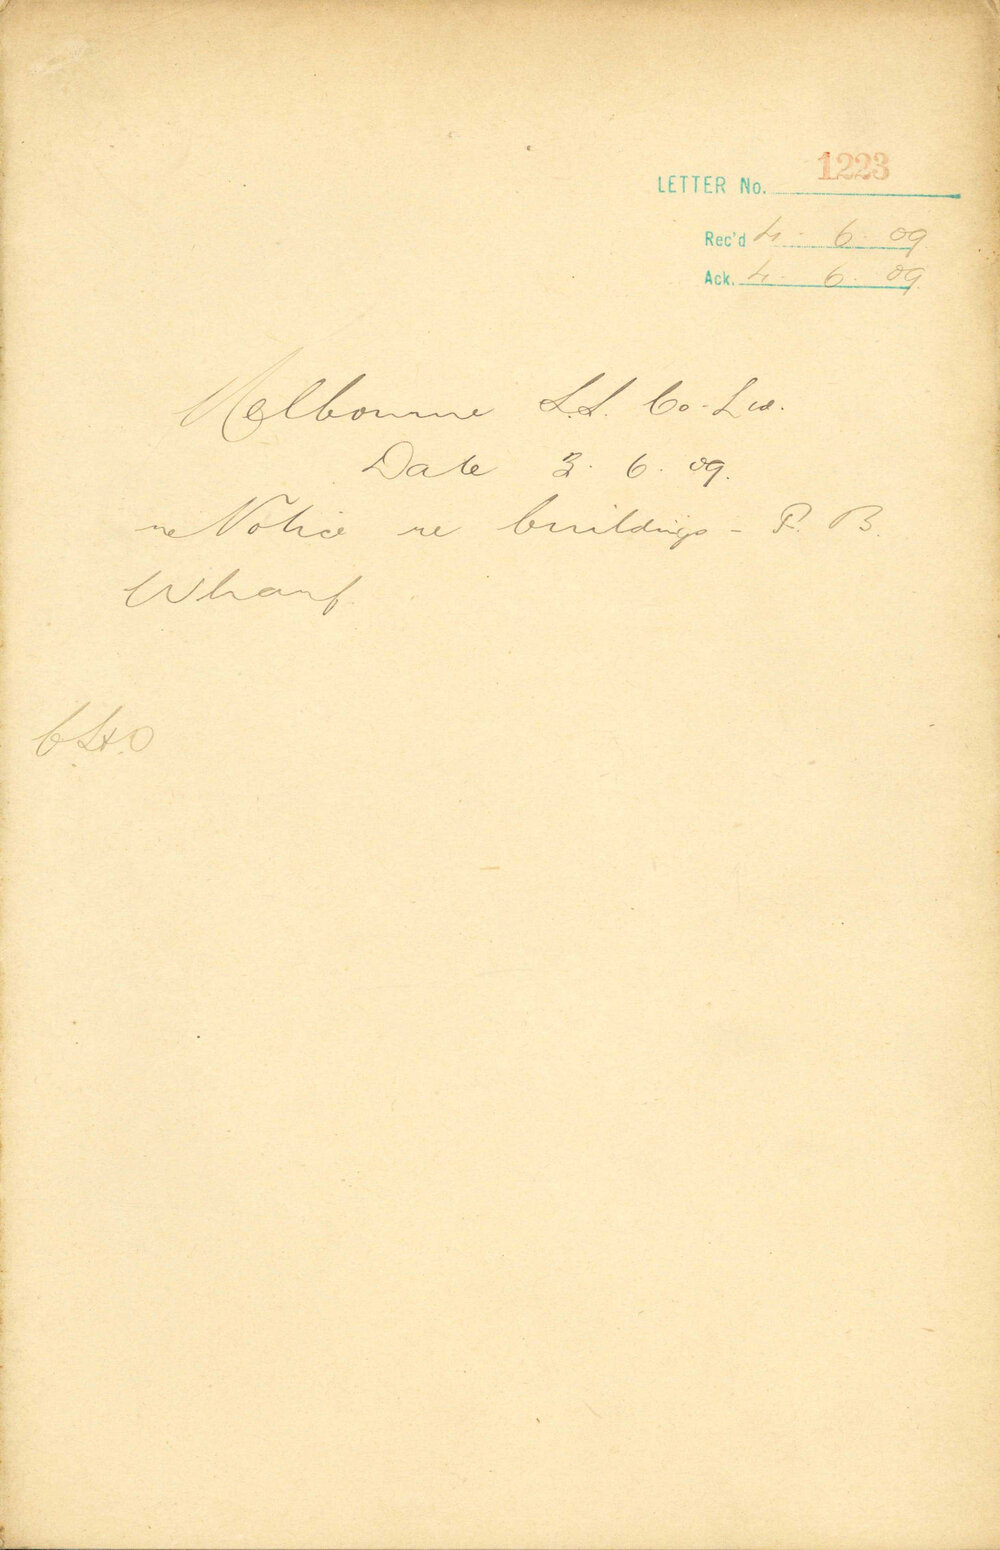 LETTER No. 1223
Rec'd 4. 6. 09
Ack. 4. 6. 09.
Melbourne S.S. Co. Ltd.
Date 3. 6. 09.
re Notice re buildings - P. B.
Wharf